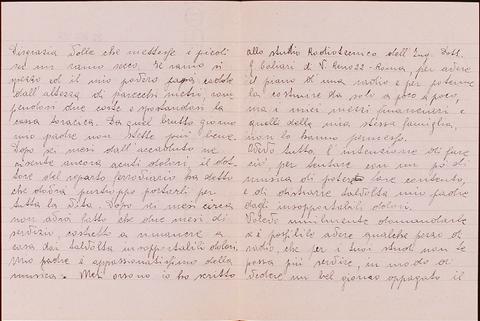 Disgrazia volle che mettesse i piedi
su un ramo secco. Il ramo si
spezzò ed il mio povero papà cadde
dall'altezza di parecchi metri, rom
pendosi due coste e spostandosi la
cassa toracica. Da quel brutto giorno
mio padre non stette più bene.
Dopo sei mesi dall'accaduto ne
risente ancora acuti dolori, il dot
tore del reparto ferroviario ha detto
che dovrà purtroppo portarli per
tutta la vita. Dopo sei mesi circa
non avrà fatto che due mesi di
servizio, costretto a rimanere a
casa dai talvolta insopportabili dolori.
Mio padre è appassionatissimo della
musica. Mesi orsono io ho scritto
allo studio Radiotecnico dell'Ing. Dott.
di V. Reno 22 - Roma, per avere
il piano di una radio e per poterme
la costruire da solo a poco a poco,
ma i miei mezzi finanziari e
quelli della mia stessa famiglia,
non lo hanno permesso.
Avevo tutta l'intenzione di fare
ciò per tentare con un po' di
musica di poterlo fare contento,
e di distrarre talvolta mio padre
dagli insopportabili dolori.
Vorrei umilmente domandarle
se è possibile avere qualche pezzo di
radio, che per i suoi studi non le
possa più servire, in modo di
vedere un bel giorno appagato il